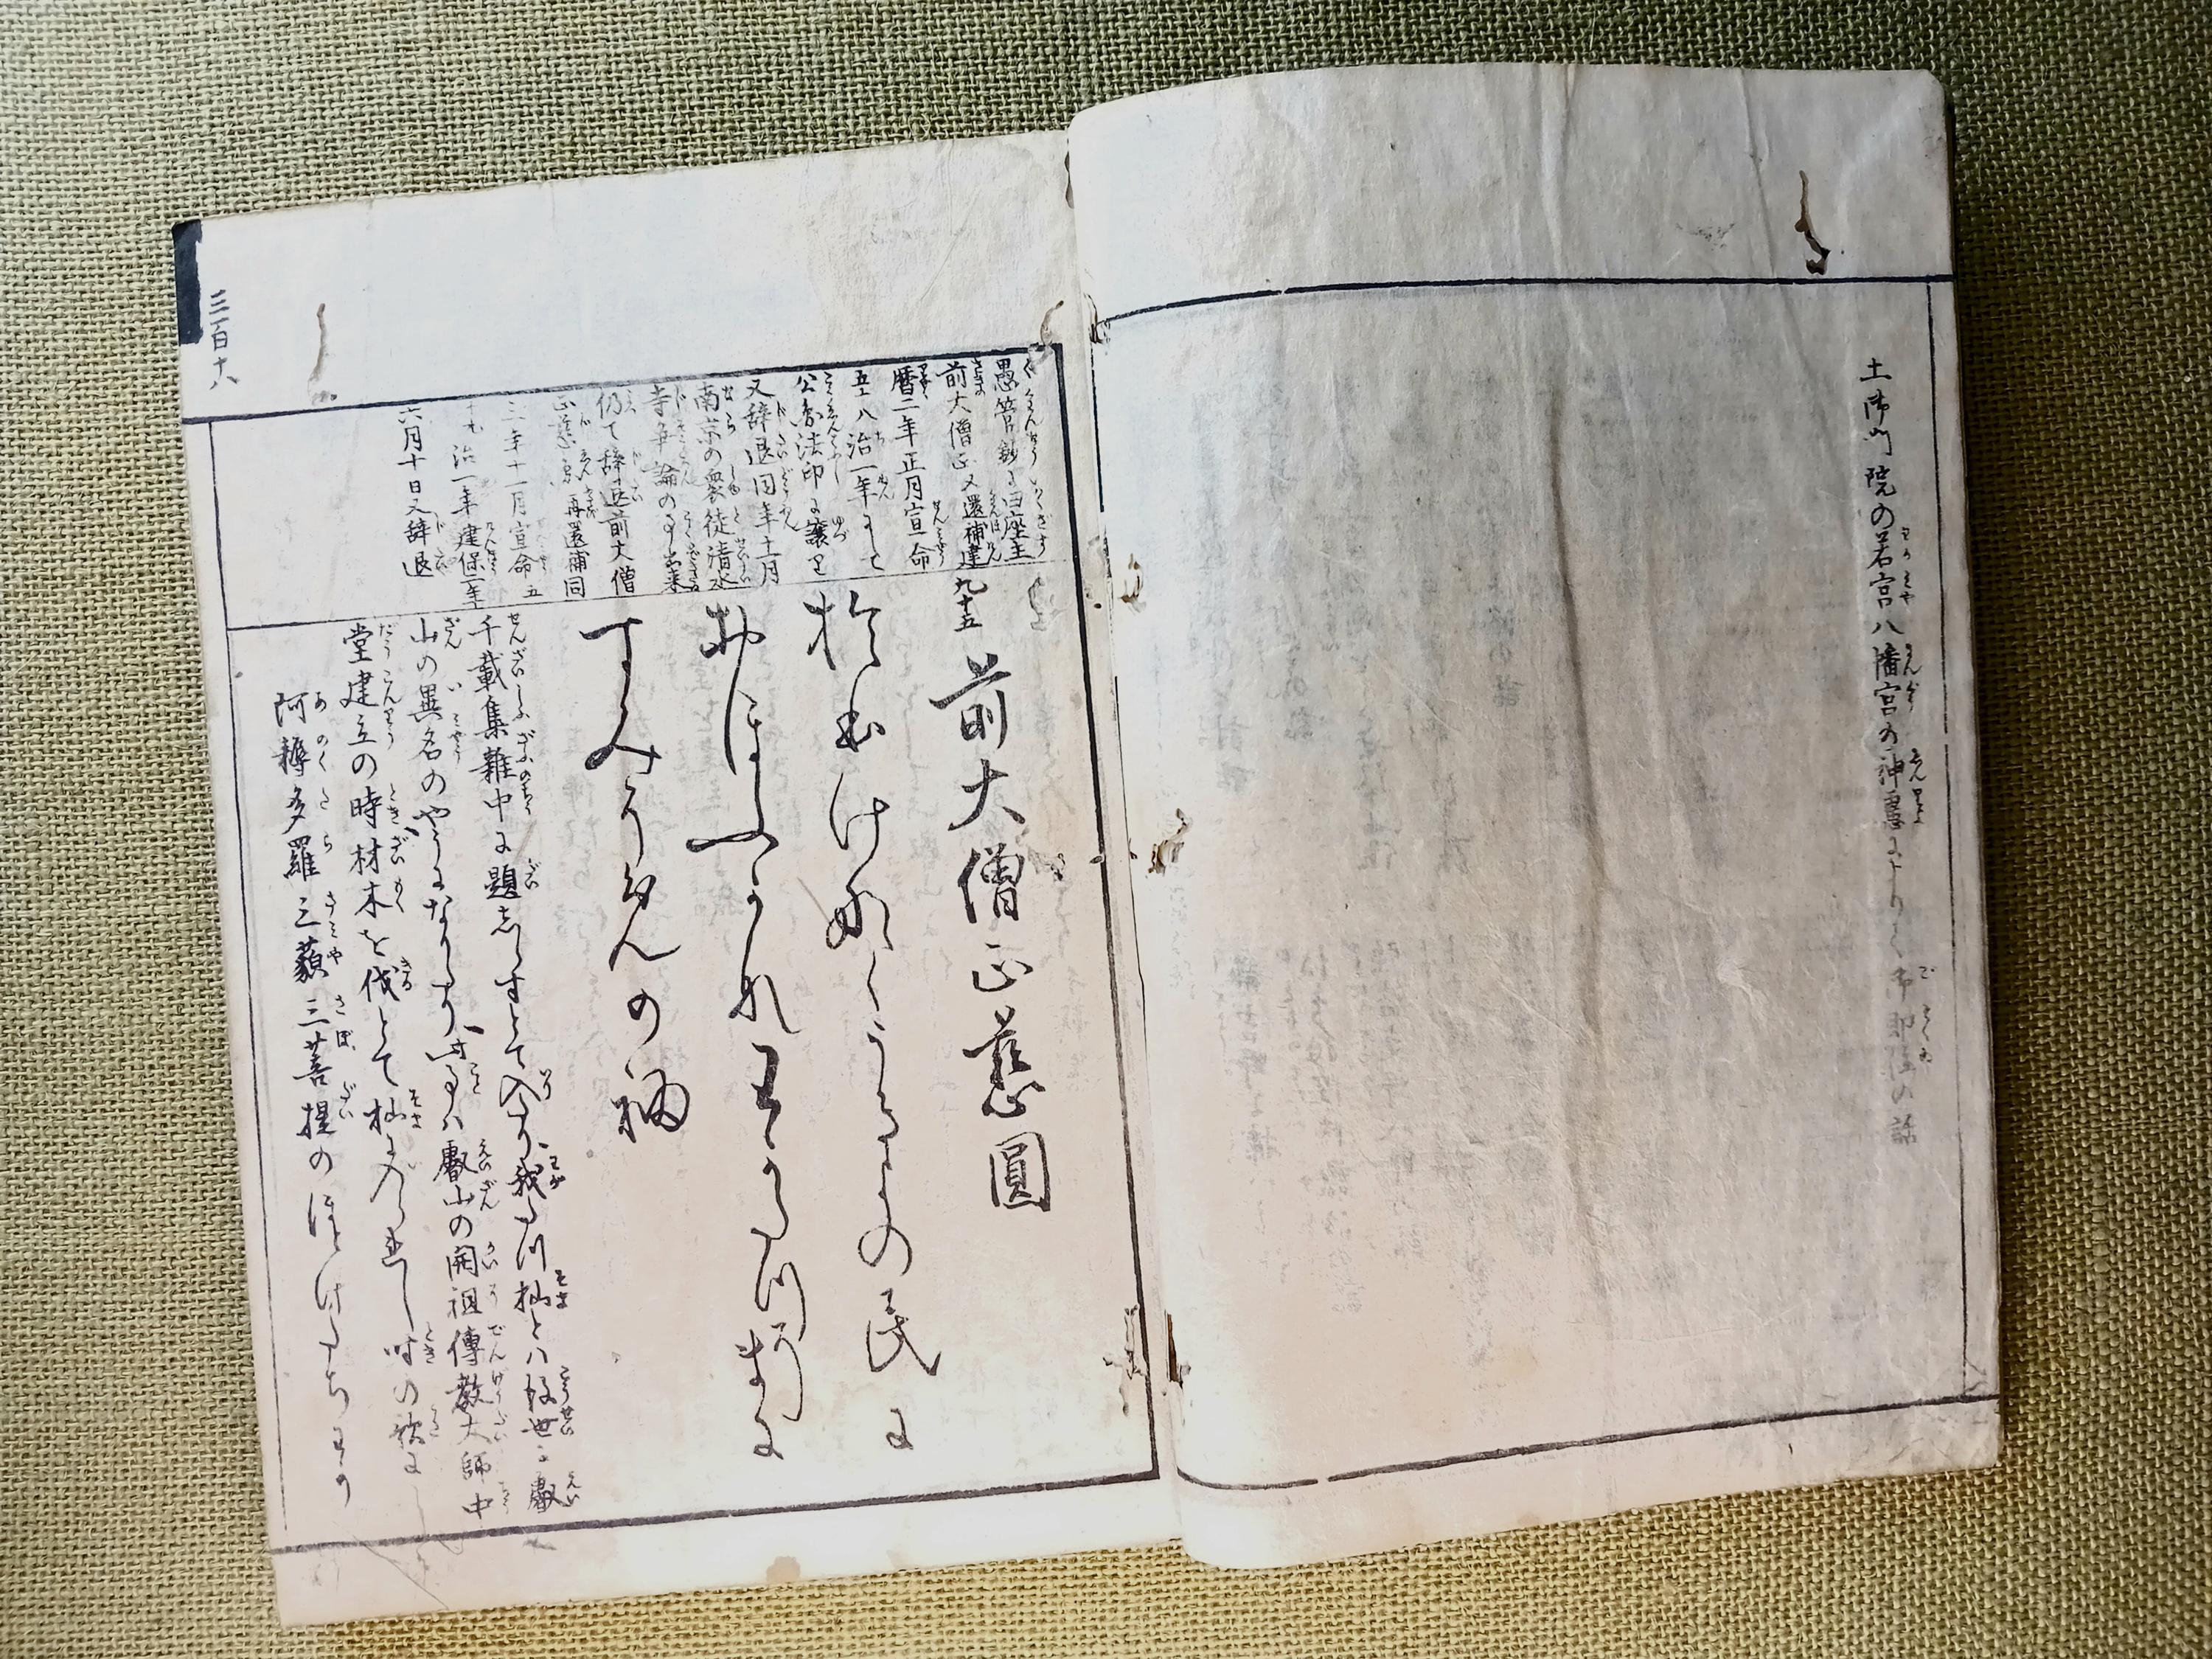 土御門院の若宮八幡宮の神慮によりて御即位の話
三百十八
愚管鈔に曰座主
前大僧正又還補建
暦二年正月宣命
五ケ八治一年にして
公圓法印に譲る
又辞退同年十一月
南京の衆徒清水
寺争論の事出来
仍て辞退前大僧
正慈圓再還補同
三年十一月宣命五
治一年建保二年
六月十日又辞退
九十五
前大僧正慈圓
於本けなくうきよの民に
おほふかれわかたつそまに
すみそめの袖
千載集雑中に題しらすとて入たり我たつ杣とハ後世に叡
山の異名のやうになりたり此事ハ叡山の開祖傳教大師中
堂建立の時材木を伐とて杣に入られし時の歌に
阿耨多羅三藐三菩提のほとけたちわか